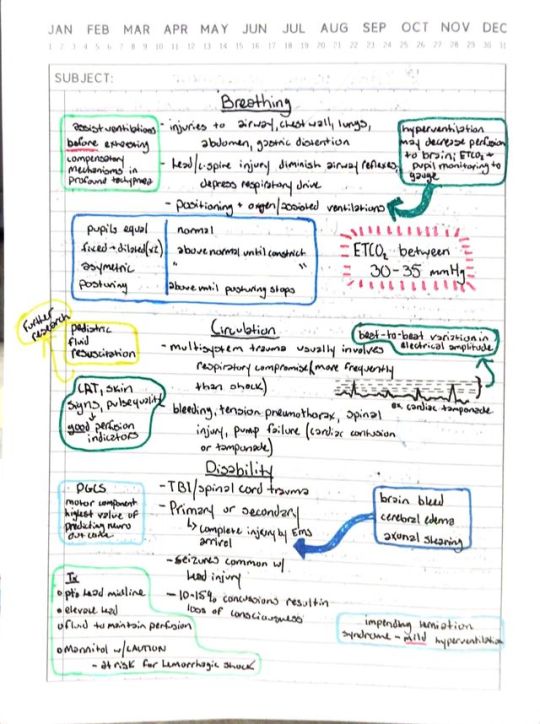 JAN FEB MAR APR MAY JUN JUL AUG SEP OCT NOV DEC
1 2 3 4 5 6 7 8 9 10 11 12 13 14 15 16 17 18 19 20 21 22 23 24 25 26 27 28 29 30 31
SUBJECT:
Breathing
assist ventilations
before exhausting
compensatory
mechanisms in
profound tachypnea
- injuries to airway, chest wall, lungs,
abdomen, gastric distention
- Head/c-spine injury diminish airway reflexes,
depress respiratory drive
- positioning + oxygen/assisted ventilations
hyperventilation
may decrease perfusion
to brain; ETCO₂ +
pupil monitoring to
gauge
pupils equal | normal
fixed + dilated(x2) | above normal until constrict
asymetric | " "
posturing | above until posturing stops
ETCO₂ between
30-35 mmHg
further
research
pediatric
fluid
resuscitation
Circulation
- multisystem trauma usually involves
respiratory compromise (more frequently
than shock)
beat-to-beat variation in
electrical amplitude
ex. cardiac tamponade
CRT, skin
signs, pulse quality
good perfusion
indicators
- bleeding, tension pneumothorax, spinal
injury, pump failure (cardiac contusion
or tamponade)
Disability
PGCS
motor component
highest value of
predicting neuro
outcome
- TBI/spinal cord trauma
- Primary or secondary
↳ complete injury by EMS
arrival
- seizures common w/
head injury
- 10-15% concussions result in
loss of consciousness
brain bleed
cerebral edema
axonal shearing
Tx
• pt's head midline
• elevate head
• fluid to maintain perfusion
• Mannitol w/CAUTION
- at risk for hemorrhagic shock
impending herniation
syndrome - mild hyperventilation